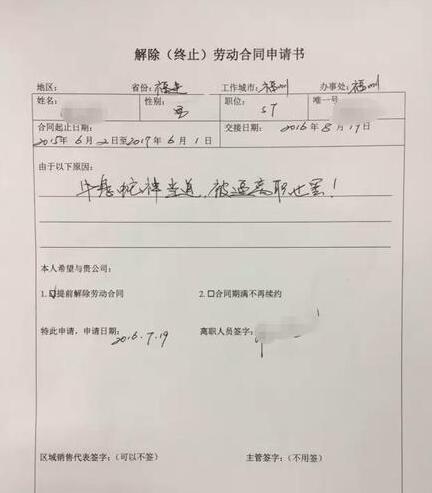 解除（终止）劳动合同申请书
地区： 省份：福建 工作城市：福州 办事处：福州
姓名： 性别：男 职位：ST 唯一号
合同起止日期： 交接日期：2016年8月19日
2015年6月2日至2017年6月1日
由于以下原因：
牛鬼蛇神当道，被逼离职也罢！
本人希望与贵公司：
1.☑提前解除劳动合同 2.☐合同期满不再续约
特此申请，申请日期：2016.7.19 离职人员签字：
区域销售代表签字：（可以不签） 主管签字：（不用签）